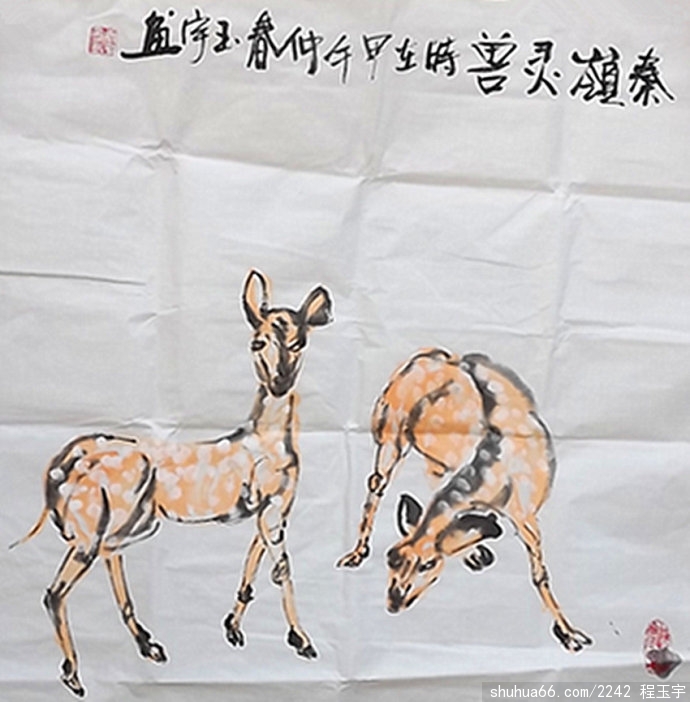 秦嶺灵兽時在甲午仲春玉宇画
shuhua66.com/2242 程玉宇